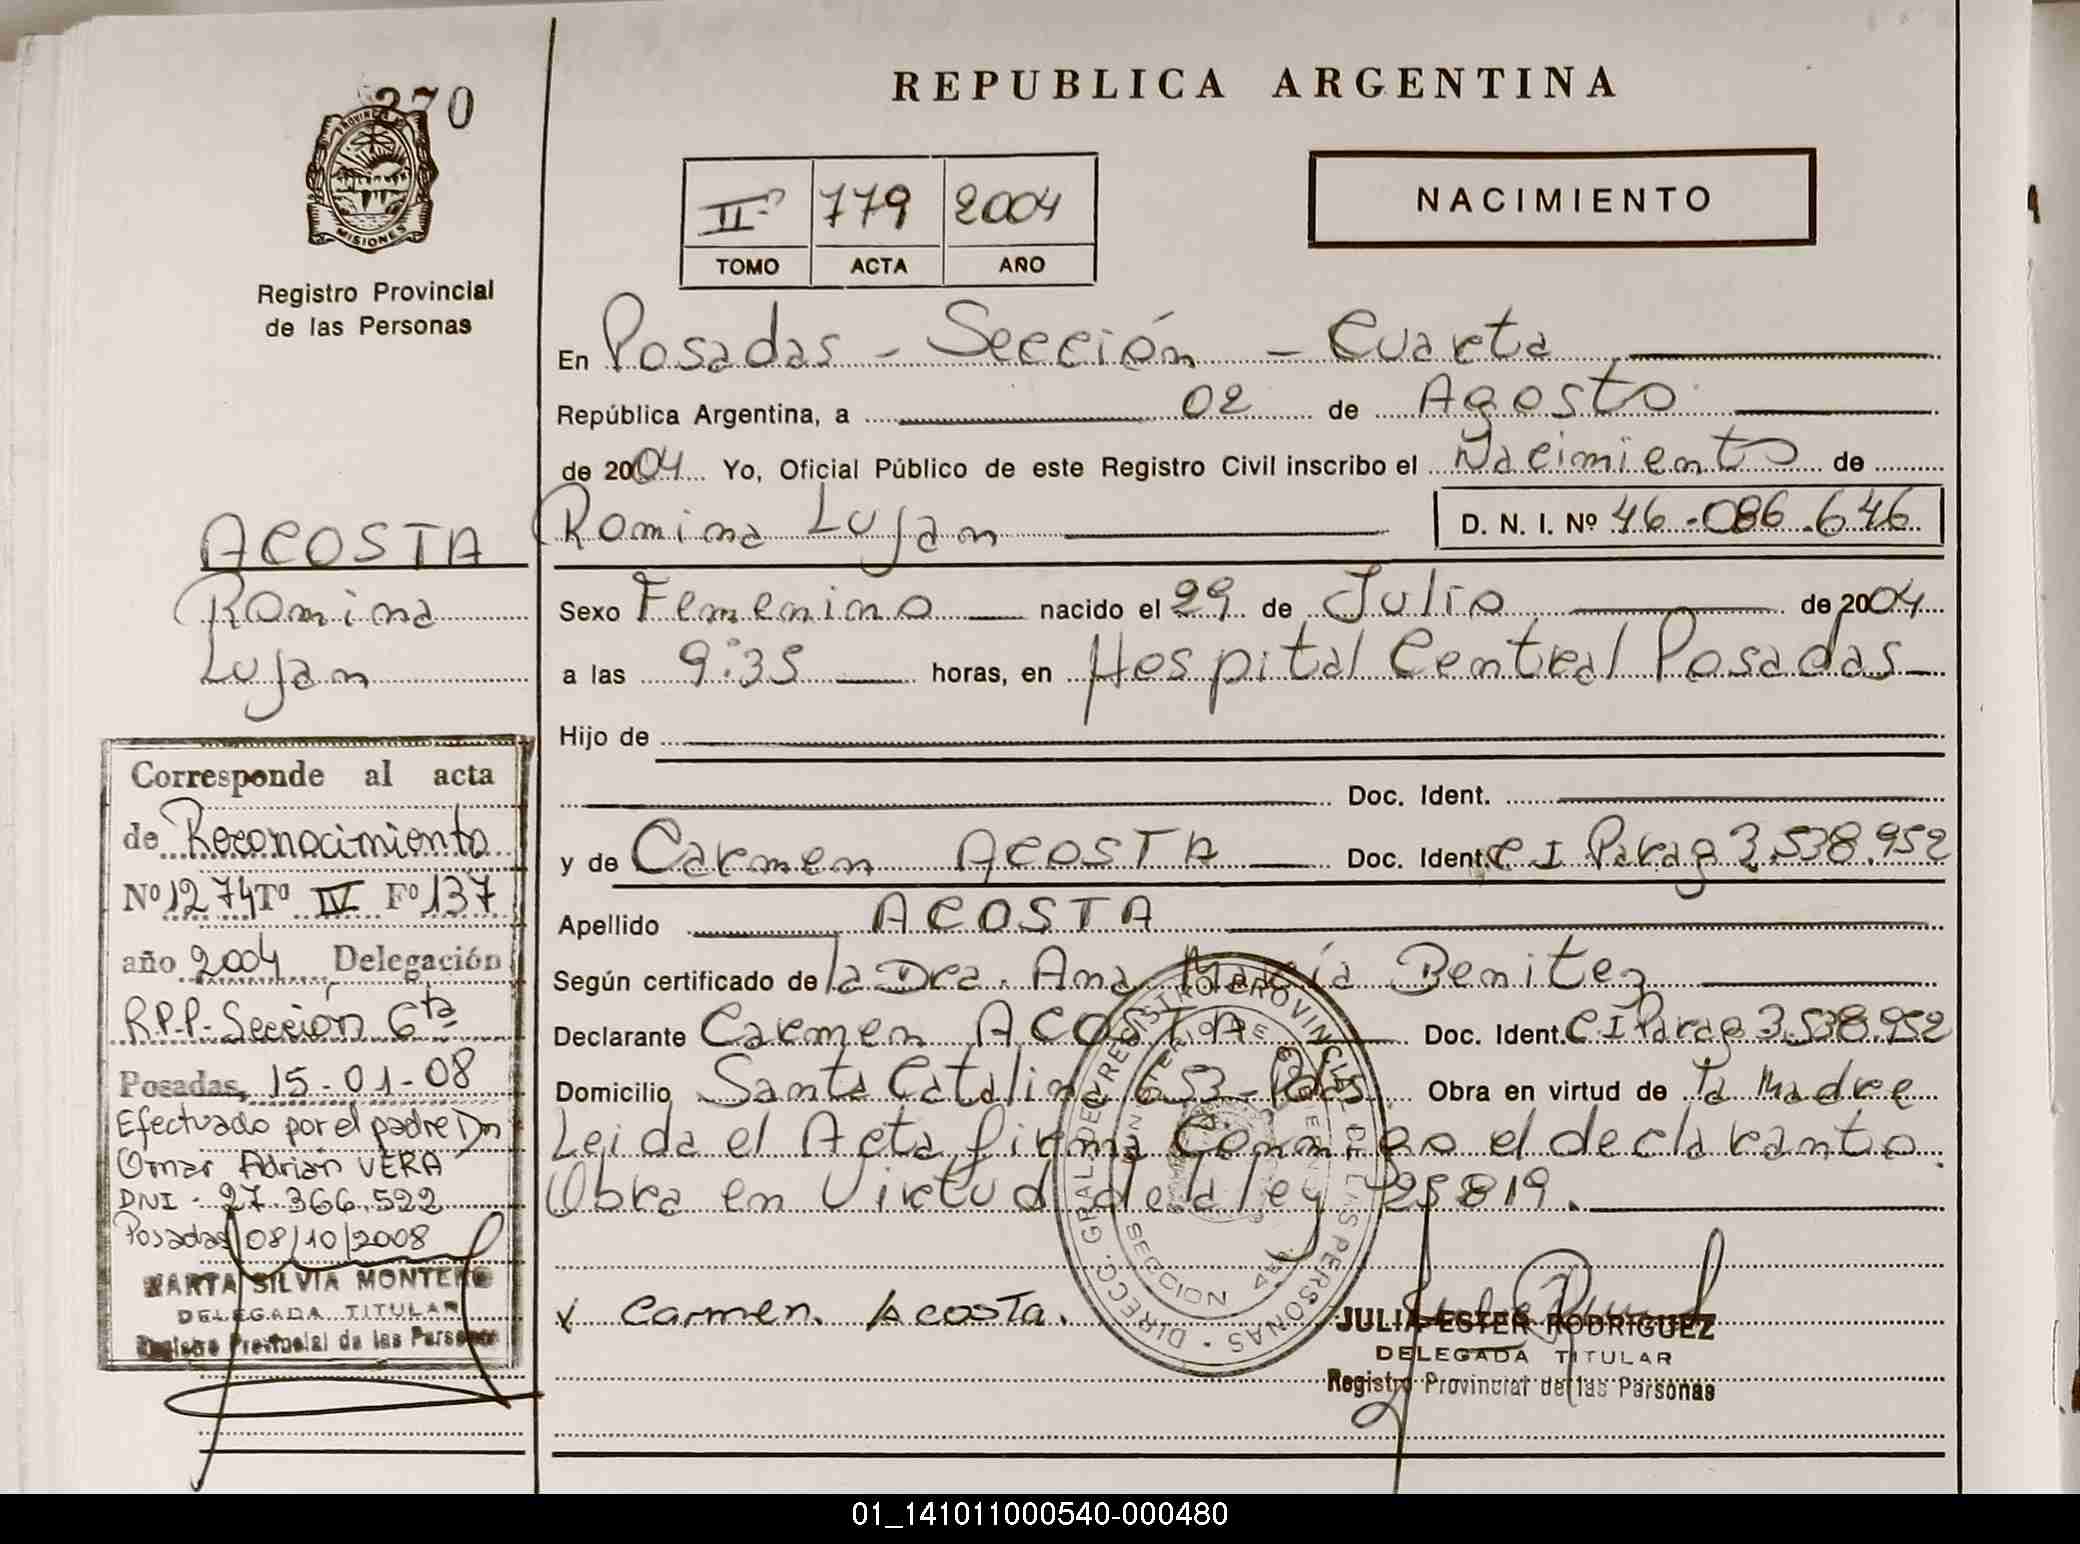 370
PROVINCIA DE
MISIONES
Registro Provincial
de las Personas
REPUBLICA ARGENTINA
II 779 2004
TOMO ACTA AÑO
NACIMIENTO
En Posadas - Sección - Cuarta
República Argentina, a 02 de Agosto
de 2004 Yo, Oficial Público de este Registro Civil inscribo el Nacimiento de
Romina Lujan D. N. I. Nº 46.086.646
Sexo Femenino nacido el 29 de Julio de 2004
a las 9:35 horas, en Hospital Central Posadas
Hijo de
Doc. Ident.
y de Carmen ACOSTA Doc. Ident. CI Parag 3.538.952
Apellido ACOSTA
Según certificado de la Dra. Ana María Benitez
Declarante Carmen ACOSTA Doc. Ident. CI Parag 3.538.952
Domicilio Santa Catalina 653 - Pdas. Obra en virtud de la Madre
Leida el Acta firma Conmigo el declarante.
Obra en Virtud de la ley 25819.
x Carmen. Acosta.
JULIA ESTER RODRIGUEZ
DELEGADA TITULAR
Registro Provincial de las Personas
DIRECC. GRAL. DEL REGISTRO PROVINCIAL DE LAS PERSONAS
MINISTERIO DE GOBIERNO
SECCION 4ta
ACOSTA
Romina
Lujan
Corresponde al acta
de Reconocimiento
Nº 1274 Tº IV Fº 137
año 2004, Delegación
R.P.P. Sección 6ta
Posadas, 15-01-08
Efectuado por el padre Dn
Omar Adrián VERA
DNI - 27.366.522
Posadas 08/10/2008
MARTA SILVIA MONTERO
DELEGADA TITULAR
Registro Provincial de las Personas
01_141011000540-000480